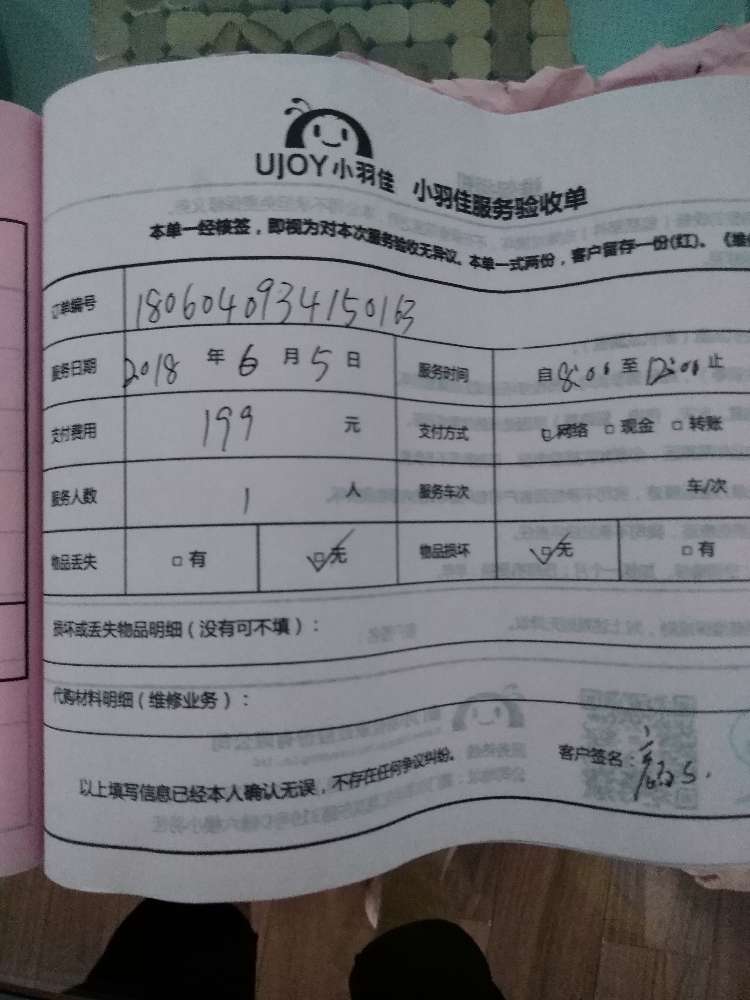 UJOY小羽佳 小羽佳服务验收单
本单一经核签，即视为对本次服务验收无异议。本单一式两份，客户留存一份(红)。《维
订单编号 1806040934150163
服务日期 2018 年 6 月 5 日 服务时间 自 8:00 至 12:00 止
支付费用 199 元 支付方式 网络 现金 转账
服务人数 1 人 服务车次 车/次
物品丢失 有 无 物品损坏 无 有
损坏或丢失物品明细（没有可不填）：
代购材料明细（维修业务）：
以上填写信息已经本人确认无误，不存在任何争议纠纷。 客户签名：